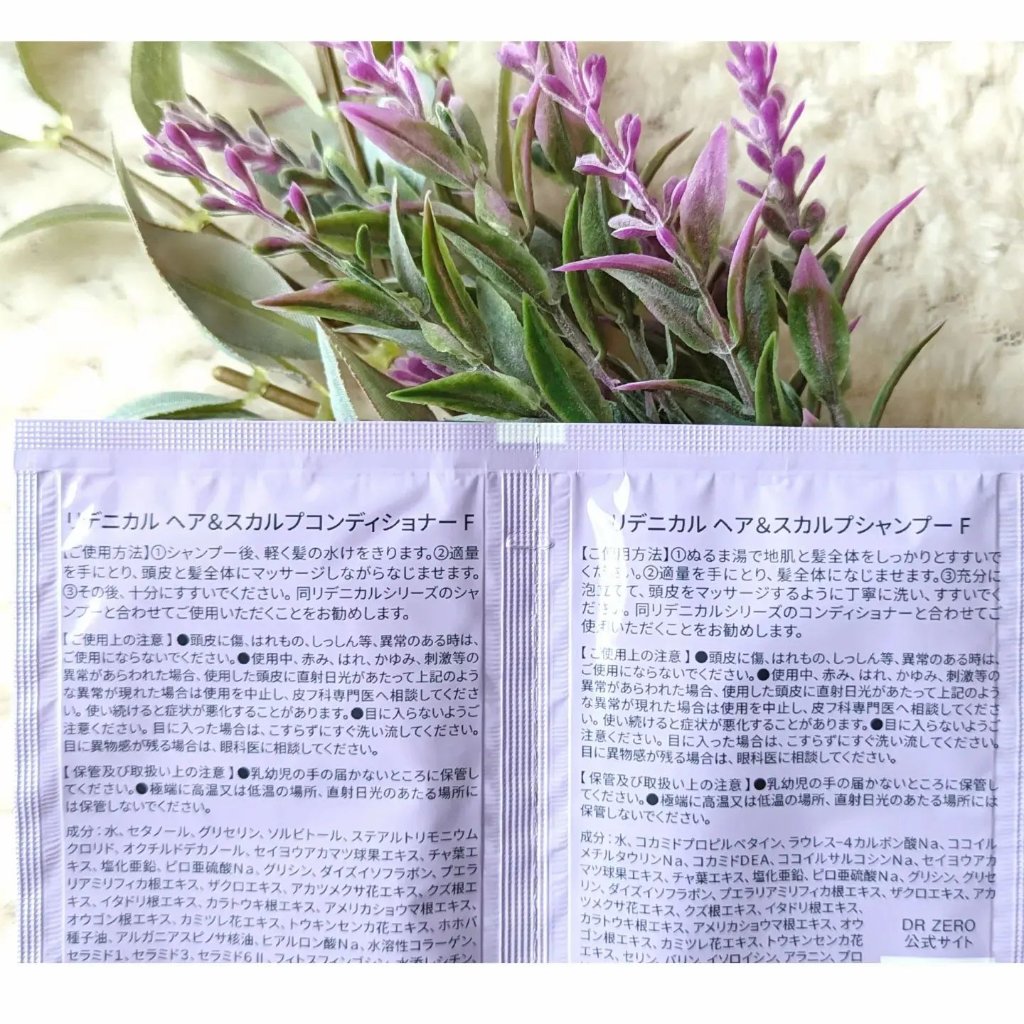 リデニカル ヘア&スカルプコンディショナー F
【ご使用方法】①シャンプー後、軽く髪の水けをきります。②適量
を手にとり、頭皮と髪全体にマッサージしながらなじませます。
③その後、十分にすすいでください。同リデニカルシリーズのシャ
ンプーと合わせてご使用いただくことをお勧めします。
【ご使用上の注意】●頭皮に傷、はれもの、しっしん等、異常のある時は、
ご使用にならないでください。●使用中、赤み、はれ、かゆみ、刺激等の
異常があらわれた場合、使用した頭皮に直射日光があたって上記のよう
な異常が現れた場合は使用を中止し、皮フ科専門医へ相談してくださ
い。使い続けると症状が悪化することがあります。●目に入らないようご
注意ください。目に入った場合は、こすらずにすぐ洗い流してください。
目に異物感が残る場合は、眼科医に相談してください。
【保管及び取扱い上の注意】●乳幼児の手の届かないところに保管し
てください。●極端に高温又は低温の場所、直射日光のあたる場所に
は保管しないでください。
成分：水、セタノール、グリセリン、ソルビトール、ステアルトリモニウム
クロリド、オクチルドデカノール、セイヨウアカマツ球果エキス、チャ葉エ
キス、塩化亜鉛、ピロ亜硫酸Na、グリシン、ダイズイソフラボン、プエラ
リアミリフィカ根エキス、ザクロエキス、アカツメクサ花エキス、クズ根エ
キス、イタドリ根エキス、カラトウキ根エキス、アメリカショウマ根エキス、
オウゴン根エキス、カミツレ花エキス、トウキンセンカ花エキス、ホホバ
種子油、アルガニアスピノサ核油、ヒアルロン酸Na、水溶性コラーゲン、
セラミド1、セラミド3、セラミド6Ⅱ、フィトスフィンゴシン、水添レシチン、
リデニカル ヘア&スカルプシャンプー F
【ご使用方法】①ぬるま湯で地肌と髪全体をしっかりとすすいで
ください。②適量を手にとり、髪全体になじませます。③充分に
泡立てて、頭皮をマッサージするように丁寧に洗い、すすいでく
ださい。同リデニカルシリーズのコンディショナーと合わせてご
使用いただくことをお勧めします。
【ご使用上の注意】●頭皮に傷、はれもの、しっしん等、異常のある時は、
ご使用にならないでください。●使用中、赤み、はれ、かゆみ、刺激等の
異常があらわれた場合、使用した頭皮に直射日光があたって上記のよう
な異常が現れた場合は使用を中止し、皮フ科専門医へ相談してくださ
い。使い続けると症状が悪化することがあります。●目に入らないようご
注意ください。目に入った場合は、こすらずにすぐ洗い流してください。
目に異物感が残る場合は、眼科医に相談してください。
【保管及び取扱い上の注意】●乳幼児の手の届かないところに保管し
てください。●極端に高温又は低温の場所、直射日光のあたる場所には
保管しないでください。
成分：水、コカミドプロピルベタイン、ラウレス-4カルボン酸Na、ココイル
メチルタウリンNa、コカミドDEA、ココイルサルコシンNa、セイヨウアカ
マツ球果エキス、チャ葉エキス、塩化亜鉛、ピロ亜硫酸Na、グリシン、グリセ
リン、ダイズイソフラボン、プエラリアミリフィカ根エキス、ザクロエキス、アカ
ツメクサ花エキス、クズ根エキス、イタドリ根エキス、
カラトウキ根エキス、アメリカショウマ根エキス、オウ
ゴン根エキス、カミツレ花エキス、トウキンセンカ花
エキス、セリン、バリン、イソロイシン、アラニン、プロ
DR ZERO
公式サイト